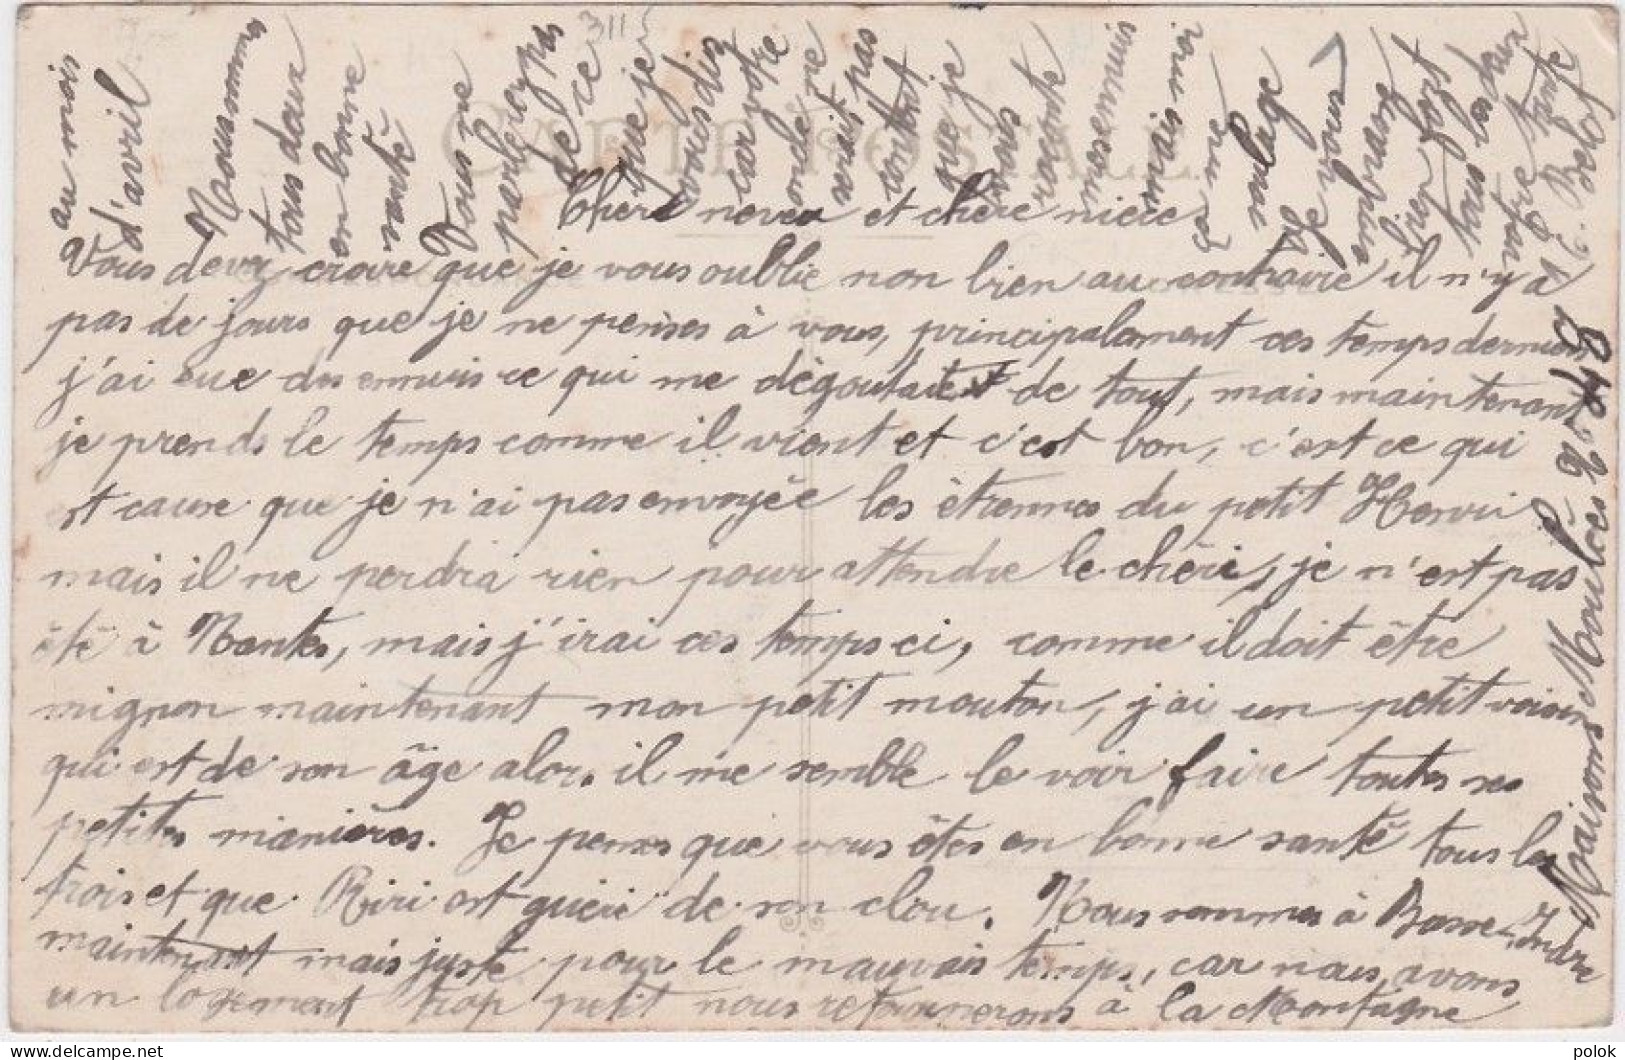 CARTE POSTALE
3115
Chers neveu et chère nièce
Vous devez croire que je vous oublie non bien au contraire il n'y a
pas de jours que je ne penses à vous, principalement ces temps derniers
j'ai eue des ennuis ce qui me dégoutait de tout, mais maintenant
je prends le temps comme il vient et c'est bon, c'est ce qui
est cause que je n'ai pas envoyée les étrennes du petit Henri
mais il ne perdra rien pour attendre le chéri, je n'est pas
été à Nantes, mais j'irai ces temps ci, comme il doit être
mignon maintenant mon petit mouton, j'ai un petit voisin
qui est de son âge alors il me semble le voir faire toutes ses
petites manières. Je penses que vous êtes en bonne santé tous les
trois et que Riri est guéri de son clou. Nous sommes à Basse-Indre
maintenant mais juste pour le mauvais temps, car nous avons
un logement trop petit nous retournerons à la Montagne
au mois
d'avril
Nous sommes
tous deux
en bonne
santé
Vous ne
parlerez pas
de ce
que je
vous dis
car votre
oncle ne
serait pas
content
que je
vous
raconte
mes ennuis
mais moi
ça me
soulage
Je vous
embrasse
bien fort
tous les deux
votre tante
Belot
Maisons Moulées